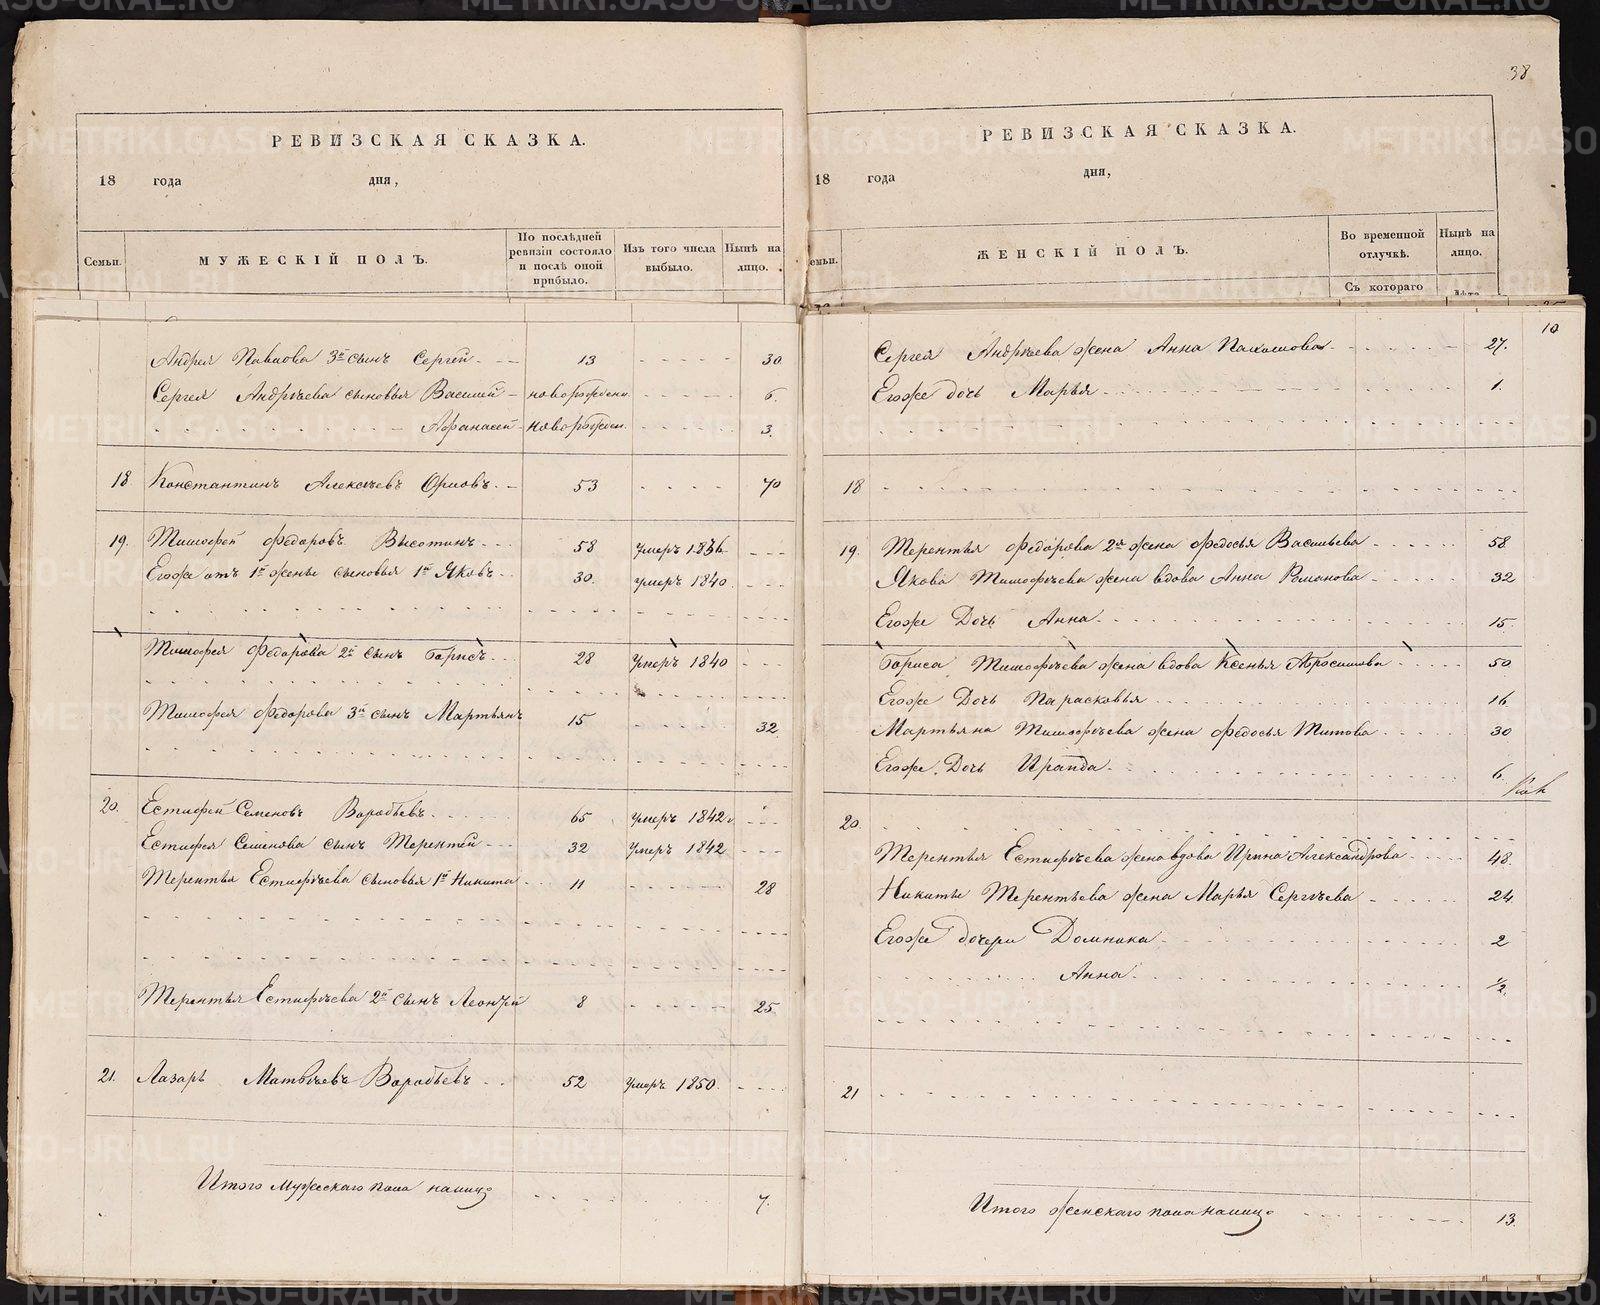 38
РЕВИЗСКАЯ СКАЗКА.
18 года дня,
Семьи.
МУЖЕСКІЙ ПОЛЪ.
По послѣдней ревизіи состояло и послѣ оной прибыло.
Изъ того числа выбыло.
Нынѣ на лицо.
Андрея Павлова 3й сынъ Сергей 13 30
Сергея Андрѣева сыновья Василей новорожден. 6.
Афанасей новорожден. 3.
18 Константинъ Алексѣевъ Орловъ. 53 70
19. Тимофей Федоровъ Высотинъ 58 умеръ 1836
Егоже отъ 1й жены сыновья 1й Яковъ 30. умеръ 1840
Тимофея Федорова 2й сынъ Борисъ 28 умеръ 1840
Тимофея Федорова 3й сынъ Мартьянъ 15 32.
20. Естифей Семеновъ Воробьевъ. 65 умеръ 1842
Естифея Семенова сынъ Терентей 32 умеръ 1842
Терентья Естифѣева сыновья 1й Никита 11 28
Терентья Естифѣева 2й сынъ Леонтей 8 25
21. Лазарь Матвѣевъ Воробьевъ 52 умеръ 1850.
Итого мужескаго пола налицо 7.
РЕВИЗСКАЯ СКАЗКА.
18 года дня,
емьи.
ЖЕНСКІЙ ПОЛЪ.
Во временной отлучкѣ.
Нынѣ на лицо.
Съ котораго
Лѣта
10
Сергея Андрѣева жена Анна 27.
Егоже дочь Марья 1.
18
19. Терентья Федорова 2я жена Федосья Васильева 58
Якова Тимофѣева жена вдова Анна Романова 32
Егоже Дочь Анна 15
Бориса Тимофѣева жена вдова Ксенья Абросимова 50
Егоже Дочь Парасковья 16
Мартьяна Тимофѣева жена Федосья Титова 30
Егоже Дочь Ираида 6
20.
Терентья Естифѣева жена вдова Ирина Александрова 48.
Никиты Терентьева жена Марья Сергѣева 24
Егоже дочери Домника 2
Анна ½
21
Итого женскаго пола налицо 13.
METRIKI.GASO-URAL.RU